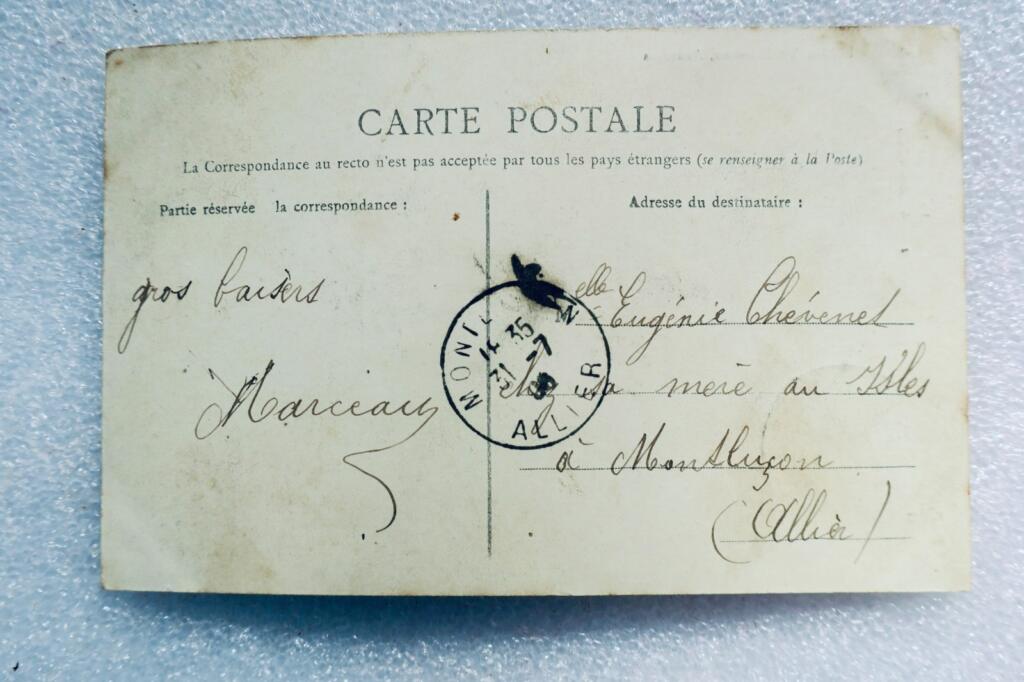 CARTE POSTALE
La Correspondance au recto n'est pas acceptée par tous les pays étrangers (se renseigner à la Poste)
Partie réservée la correspondance :
Adresse du destinataire :
gros baisers
Marceau
elle Eugénie Chévenet
chez sa mère au Isles
à Montluçon
(Allier)
14 35
31 -7
ALLIER